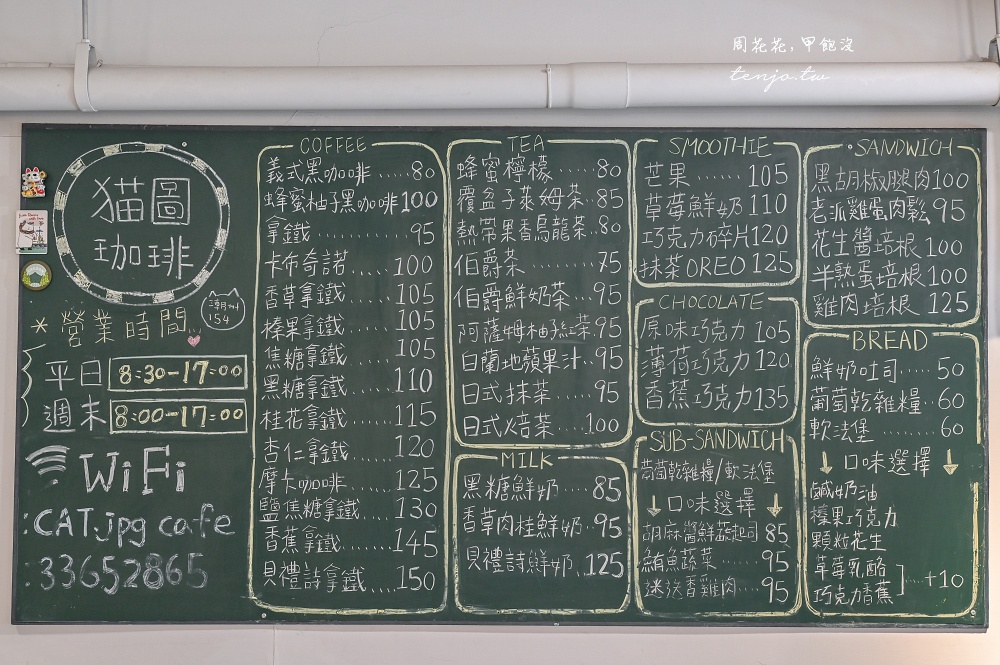 周花花，甲飽沒
tenjo.tw
猫圖
珈琲
潮州
154
* 營業時間
平日 8:30-17:00
週末 8:00-17:00
WiFi
:CAT.jpg cafe
:33652865
COFFEE
義式黑咖啡.....80
蜂蜜柚子黑咖啡100
拿鐵..........95
卡布奇諾.....100
香草拿鐵.....105
榛果拿鐵.....105
焦糖拿鐵.....105
黑糖拿鐵.....110
桂花拿鐵.....115
杏仁拿鐵.....120
摩卡咖啡.....125
鹽焦糖拿鐵....130
香蕉拿鐵......145
貝禮詩拿鐵....150
TEA
蜂蜜檸檬....80
覆盆子萊姆茶..85
熱帶果香烏龍茶..80
伯爵茶......75
伯爵鮮奶茶...95
阿薩姆柚子紅茶95
白蘭地蘋果汁.95
日式抹茶....95
日式焙茶...100
MILK
黑糖鮮奶....85
香草肉桂鮮奶.95
貝禮詩鮮奶.125
SMOOTHIE
芒果.....105
草莓鮮奶 110
巧克力碎片120
抹茶OREO 125
CHOCOLATE
原味巧克力 105
薄荷巧克力 120
香蕉巧克力 135
SUB-SANDWICH
葡萄乾雜糧/軟法堡
↓口味選擇↓
胡麻醬鮮蔬起司 85
鮪魚蔬菜....95
迷迭香雞肉...95
SANDWICH
黑胡椒腿肉100
老派雞蛋肉鬆 95
花生醬培根 100
半熟蛋培根100
雞肉培根 125
BREAD
鮮奶吐司.....50
葡萄乾雜糧..60
軟法堡.......60
↓口味選擇↓
鹹奶油
榛果巧克力
顆粒花生
草莓乳酪
巧克力香蕉
]....+10